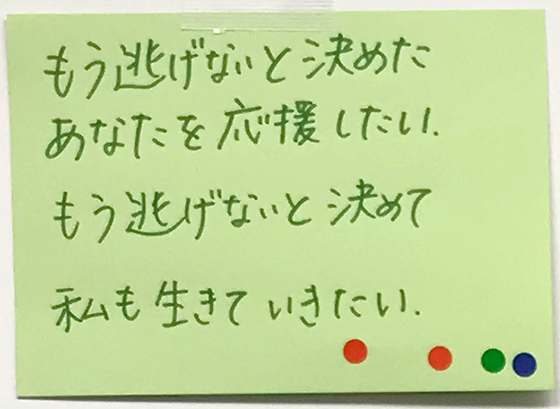 もう逃げないと決めた
あなたを応援したい.
もう逃げないと決めて
私も生きていきたい.